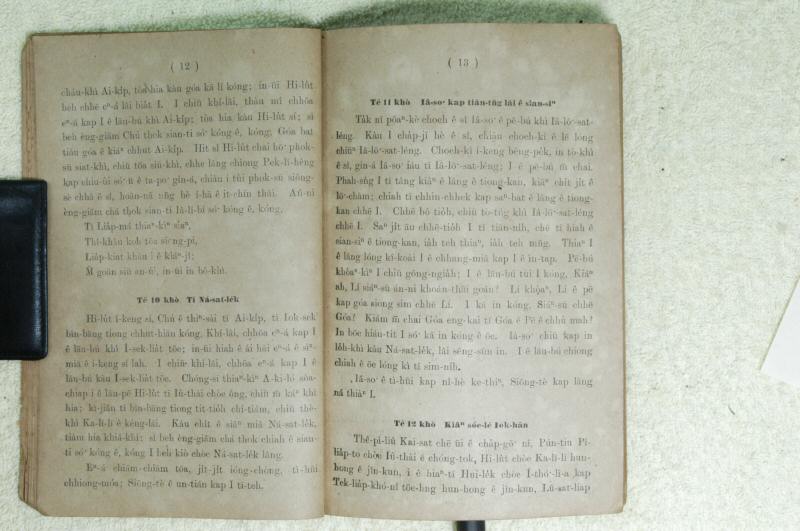 ( 12 )
cháu-khì Ai-ki̍p, tòa hia kàu góa kā lí kóng; in-ūi Hi-lu̍t
beh chhē eⁿ-á lâi bia̍t I. I chiū khí-lâi, thàu mî chhōa
eⁿ-á kap I ê lāu-bú khì Ai-ki̍p; tòa hia kàu Hi-lu̍t sí; sī
beh èng-giām Chú thok sian-ti só͘ kóng-ê, kóng, Góa bat
tiàu góa ê kiáⁿ chhut Ai-ki̍p. Hit sî Hi-lu̍t chai hō͘ phok-
sū siat-khì, chiū tōa siū-khì, chhe lâng chiong Pek-lī-hêng
kap chiu-ûi só͘ ū ê ta-po͘ gín-á, chiàu i tùi phok-sū siông-
sè chhâ ê sî, hoān-nā nn̄g hè í-hā ê it-chīn thâi. Án-ni
èng-giām chá thok sian-ti Iâ-lī-bí só͘ kóng ê, kóng,
Tī Lia̍p-má thiaⁿ-kìⁿ siaⁿ,
Thî-khàu koh tōa siong-pi,
Lia̍p-kiat khàu i ê kiáⁿ-jî;
M̄ goān siū an-ùi, in-ūi in bô-khì.
Tē 10 khò Tī Ná-sat-le̍k
Hi-lu̍t í-keng sí, Chú ê thiⁿ-sài tī Ai-ki̍p, tī Iok-sek
bîn-bāng tiong chhut-hiān kóng, Khí-lâi, chhōa eⁿ-á kap I
ê lāu-bú khì I-sek-lia̍t tōe; in-ūi hiah ê ài hāi eⁿ-á ê sìⁿ-
miā ê í-keng sí lah. I chiū khí-lâi, chhōa eⁿ-á kap I ê
lāu-bú kàu I-sek-lia̍t tōe. Chóng-sī thiaⁿ-kìⁿ A-ki-hì sòa-
chiap i ê lāu-pē Hi-lu̍t tī Iû-thài chòe ông, chiū m̄ káⁿ khì
hia; kì-jiân tī bîn-bāng tiong tit-tio̍h chí-tiám, chiū thè-
khì Ka-lī-lī ê kéng-lāi. Kàu chi̍t ê siâⁿ miâ Ná-sat-le̍k,
tiàm hia khiā-khí; sī beh èng-giām chá thok chiah ê sian-
ti só͘ kóng ê, kóng I beh kiò chòe Ná-sat-le̍k lâng.
Eⁿ-á chiām-chiām tōa, ji̍t-ji̍t ióng-chòng, tì-hūi
chhiong-móa; Siōng-tè ê un-tián kap I tī-teh.
( 13 )
Tē 11 khò Iâ-so͘ kap tiān-tn̂g lāi ê sian-siⁿ
Ta̍k nî pôaⁿ-kè choeh ê sî Iâ-so͘ ê pē-bú khì Iâ-lō͘-sat-
léng. Kàu I cha̍p-jī hè ê sî, chiàu choeh-kî ê lē lóng
chiūⁿ Iâ-lō͘-sat-léng. Choeh-kî í-keng bêng-pe̍k, in tò-khì
ê sî, gín-á Iâ-so͘ iáu tī Iâ-lō͘-sat-léng; I ê pē-bú m̄ chai.
Phah-sǹg I tī tâng kiâⁿ ê lâng ê tiong-kan, kiâⁿ chi̍t ji̍t ê
lō͘-chām; chiah tī chhin-chhek kap saⁿ-bat ê lâng ê tiong-
kan chhē I. Chhē bô tio̍h, chiū tò-tńg khì Iâ-lō͘-sat-léng
chhē I. Saⁿ ji̍t āu chhē-tio̍h I tī tiān-ni̍h, chē tī hiah ê
sian-siⁿ ê tiong-kan, ia̍h teh thiaⁿ, ia̍h teh mn̄g. Thiaⁿ I
ê lâng lóng kî-koài I ê chhang-miâ kap I ê ìn-tap. Pē-bú
khòaⁿ-kìⁿ I chiū gông-ngia̍h; I ê lāu-bú tùi I kóng, Kiáⁿ
ah, Lí siáⁿ-sū án-ni khoán-thāi goán? Lí khòaⁿ, Lí ê pē
kap góa siong sim chhē Lí. I kā in kóng, Siáⁿ-sū chhē
Góa? Kiám m̄ chai Góa eng-kai tī Góa ê Pē ê chhù mah?
In bōe hiáu-tit I só͘ kā in kóng ê ōe. Iâ-so͘ chiū kap in
lo̍h-khì kàu Ná-sat-le̍k, lâi sêng-sūn in. I ê lāu-bú chiong
chiah ê ōe lóng kì tī sim-ni̍h.
Iâ-so͘ ê tì-hūi kap nî-hè ke-thiⁿ, Siōng-tè kap lâng
ná thiàⁿ I.
Tē 12 khò Kiâⁿ sóe-lé Iok-hān
Thê-pí-liū Kai-sat chē ūi ê cha̍p-gō͘ nî, Pún-tiu Pí-
lia̍p-to chòe Iû-thài ê chóng-tok, Hi-lu̍t chòe Ka-lī-lī hun-
hong ê jîn-kun, i ê hiaⁿ-tī Hui-le̍k chòe Í-thó͘-lī-a kap
Tek-lia̍p-khó-nî tōe-hng hun-hong ê jîn-kun, Lū-sat-lia̍p